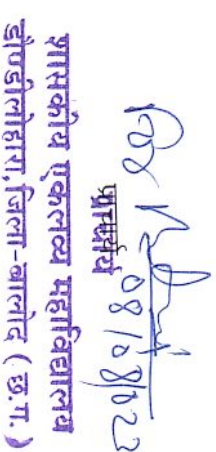 08/08/023
प्राचार्य
शासकीय एकलव्य महाविद्यालय
डौण्डीलोहारा, जिला-बालोद ( छ.ग. )